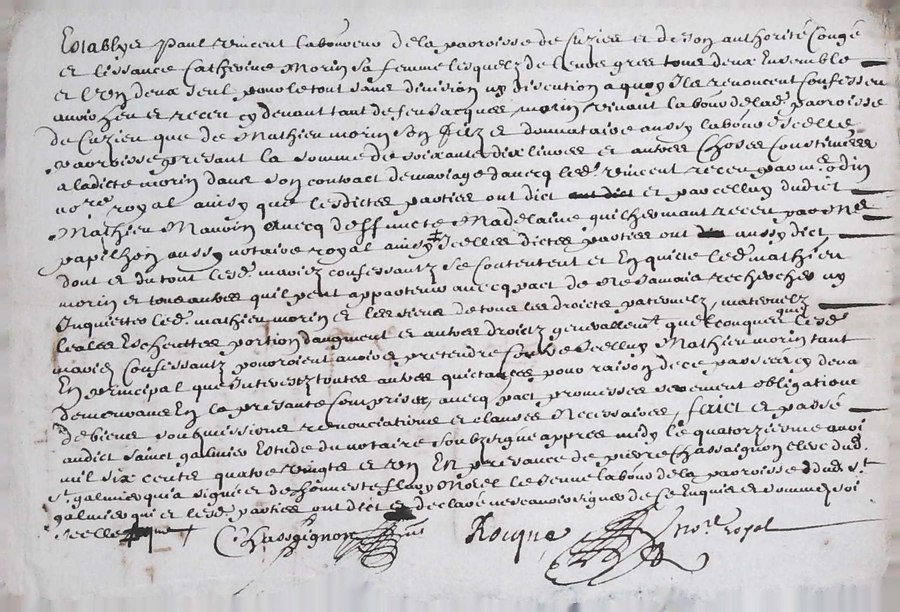 Establys Paul vincent laboureur de la parroisse de Cuzieu et de son authorité Congé
et lissance Catherine Morin sa femme lesquelz de leurs grez tous deux Ensemble
et lun deux seul pour le tout sans division ny discution a quoy ils renoncent Confessent
avoir heu et receu cy devant tant de feu Jacques morin vivant labour de lad. parroisse
de Cuzieu que de Mathieu morin son filz et donnataire aussy labour dicelle
parroisse presant la somme de soixante dix livres et autres Choses Constituees
a ladicte morin dans son contract de mariage avecq led. vincent receu par me odin
nore. royal ainsy que lesdictes parties ont dict et par celluy dudict
Mathieu Mauvin avecq deffuncte Madelaine receu par Me
papilhon aussy notaire royal ainsy Icelles dictes parties ont aussy dict
dont et du tout lesd. mariez confessantz se Contentent et En quitte led. mathieu
morin et tous autres quil peut appartenir avecq pact de ne Jamais rechercher ny
Inquietter led. mathieu morin et les siens de tous les droicts paternelz, maternelz
leales Escheuttes portion daugment et autres droictz generallemt. quelconques que lesd.
mariez Confessantz pouroient avoir et pretendre sur Icelluy Mathieu morin tant
En principal que Interestz toutes autres quictances pour raison de ce passees cy deva
demeurans En la presante Comprises, avecq pact promesses serement obligations
de biens soubmissions renonciations et clauses Necessaires, faict et passé
audict sainct galmier Estude du notaire soubzsigné appres midy le quatorziesme
mil six cents quatre vingts et un En presance de pierre Chassaignon clerc dud.
st. galmier qui a signé et de honneste flary Morel labour de la parroisse dud st.
galmier qui et lesd. parties ont dict et declaré ne scavoir signer de ce Enquis et sommez soi
Icelle que
C Chassaignon
Rocque
No.re Royal